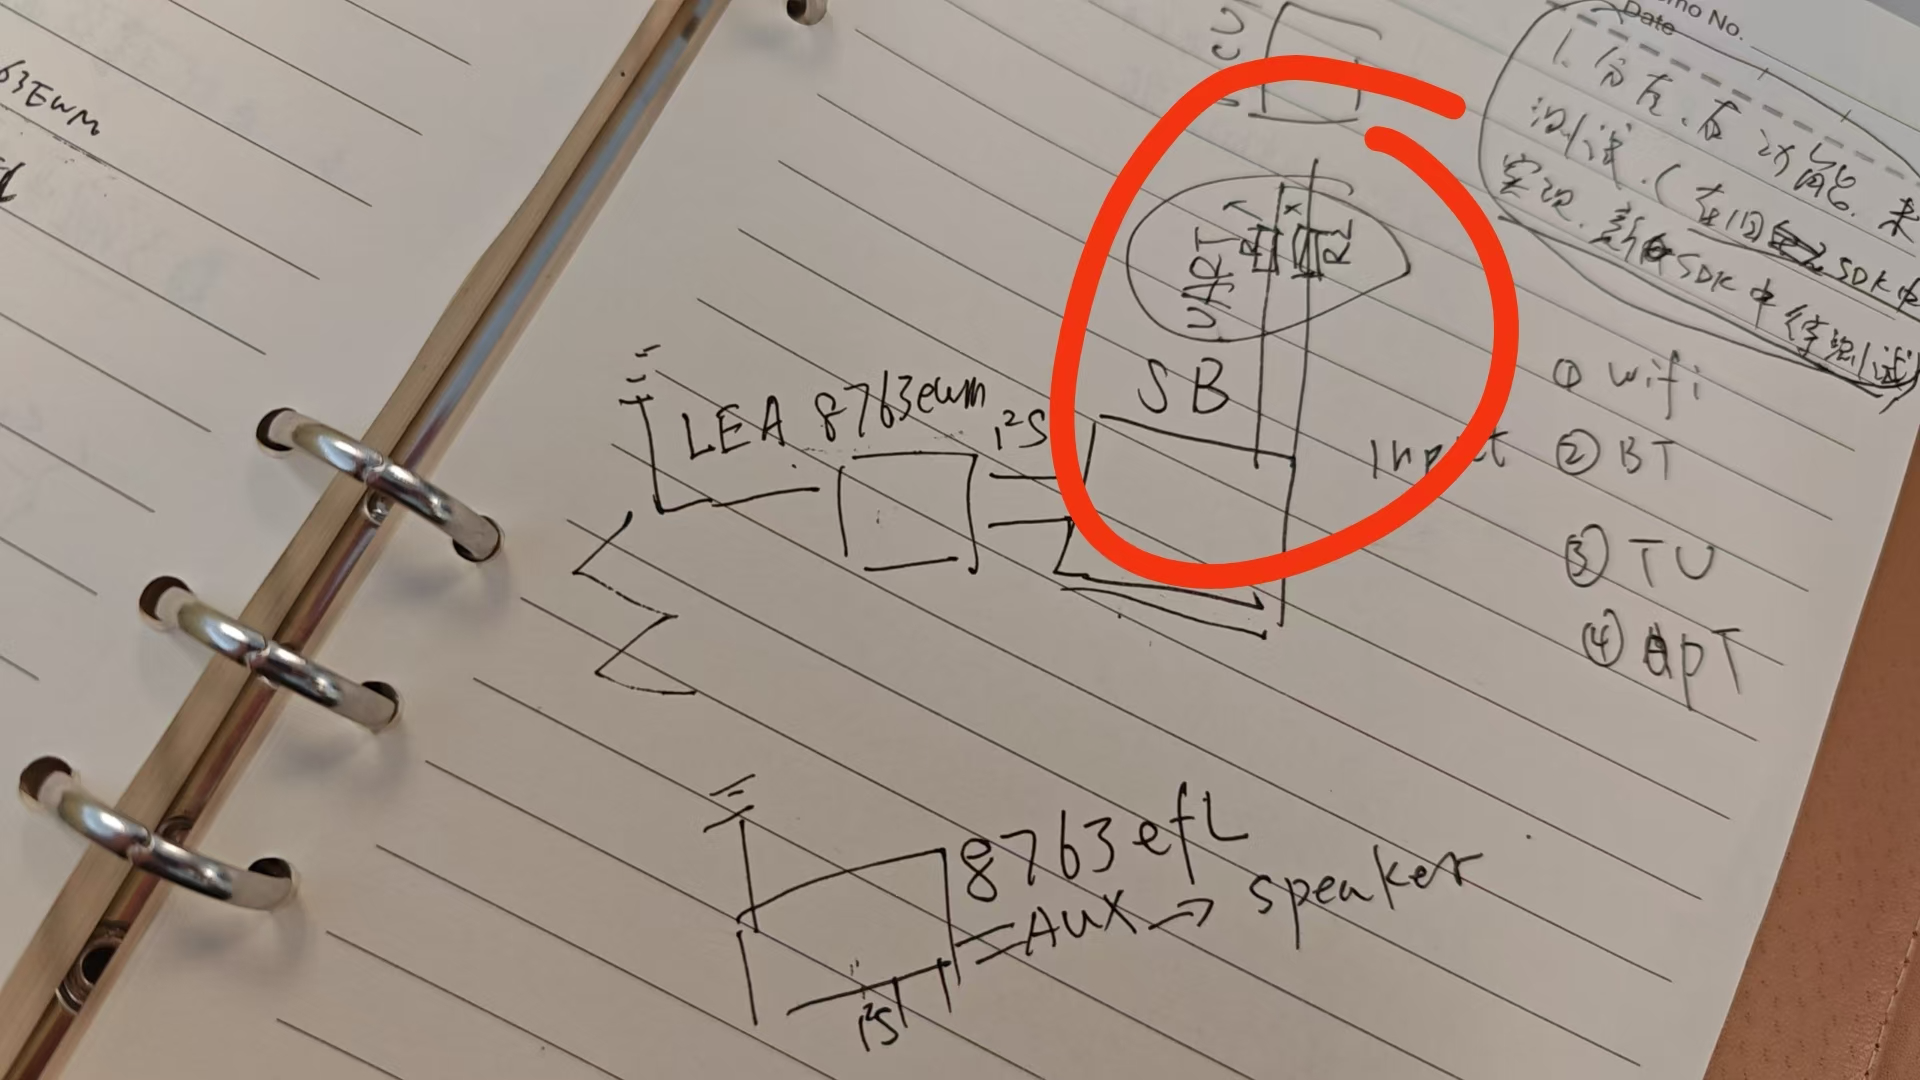 63EWM
Memo No.
Date
1. 分左、右功能. 未
测试.(在旧SDK中
实现.新SDK中待测试)
UART
SB
LEA 8763ewm
I²S
Input
① wifi
② BT
③ TV
④ OPT
8763efL
=AUX → speaker
I²S